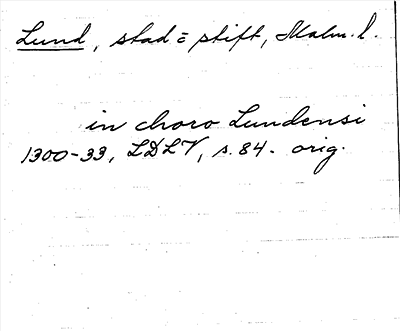 Lund, stad = stift, Malm. l.
in choro Lundensi
1300-33, LDLV, s. 84. orig.